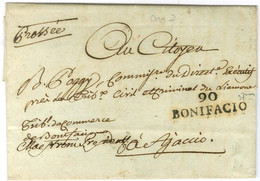 Pressée
Au Citoyen
B. Poggy, Commiss.re du Direct. Exécutif
près les Trib. Civil et criminel du Liamone
90
BONIFACIO
Trib. de Commerce
de Bonifacio
à Ajaccio